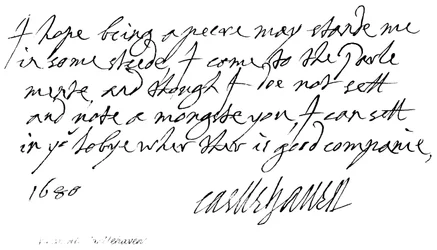 I hope being a peere may stande me
in some steede I come to the Parle
mente and though I doe not sett
and note a mongste you I can sett
in yᵉ lobye wher ther is good companie,
1680
Castlehaven